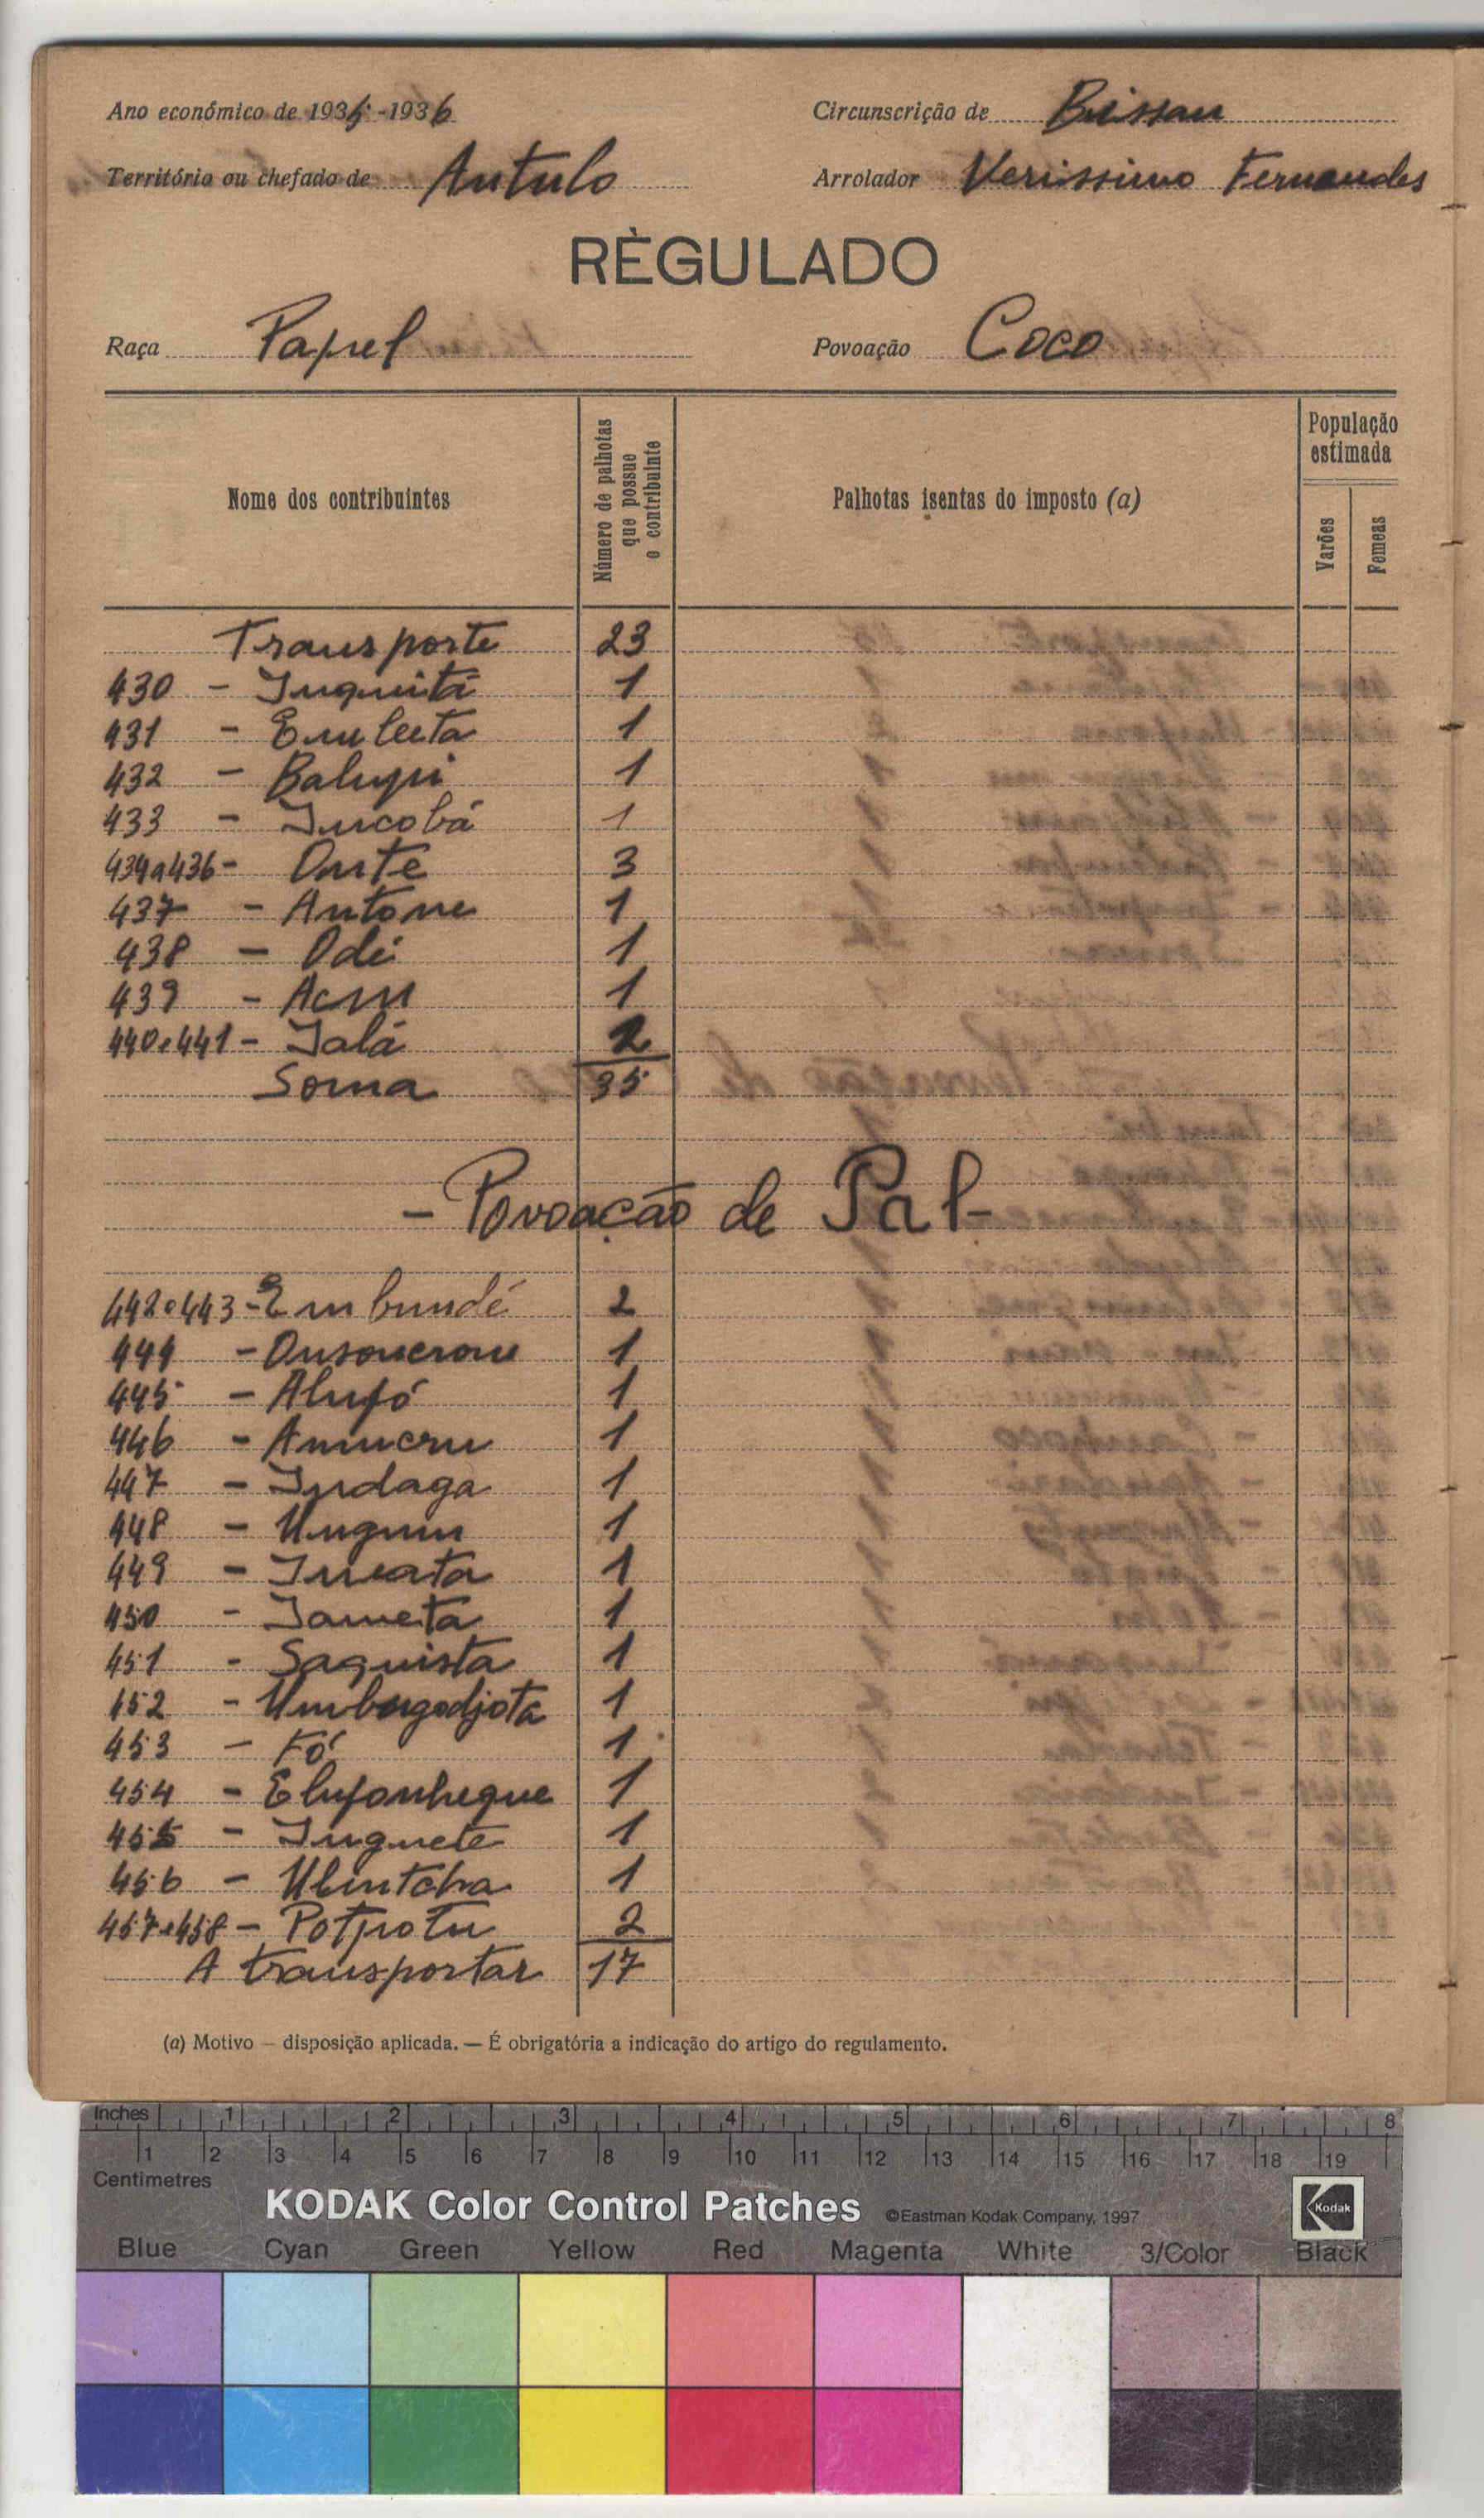 Ano económico de 1935-1936
Circunscrição de Bissau
Território ou chefado de Antulo
Arrolador Verissimo Fernandes
RÈGULADO
Raça Papel
Povoação Coco
Nome dos contribuintes
Número de palhotas que possue o contribuinte
Palhotas isentas do imposto (a)
População estimada
Varões
Femeas
Transporte 23
430 - Inquitá 1
431 - 1
432 - Balupi 1
433 - Incobá 1
434 a 436 - Onte 3
437 - Antone 1
438 - Odi 1
439 - 1
440 e 441 - Ialá 2
Soma 35
- Povoação de Pal -
442 e 443 - Embundé 2
444 - 1
445 - Alufó 1
446 - 1
447 - Indaga 1
448 - 1
449 - 1
450 - Iameta 1
451 - Saquista 1
452 - Umbugodjota 1
453 - Fó 1
454 - Elufonhegue 1
455 - Inguete 1
456 - Ulintcha 1
457 e 458 - Potpotu 2
A transportar 17
(a) Motivo — disposição aplicada. — É obrigatória a indicação do artigo do regulamento.
Inches 1 2 3 4 5 6 7 8
1 2 3 4 5 6 7 8 9 10 11 12 13 14 15 16 17 18 19
Centimetres
KODAK Color Control Patches ©Eastman Kodak Company, 1997 Kodak
Blue Cyan Green Yellow Red Magenta White 3/Color Black